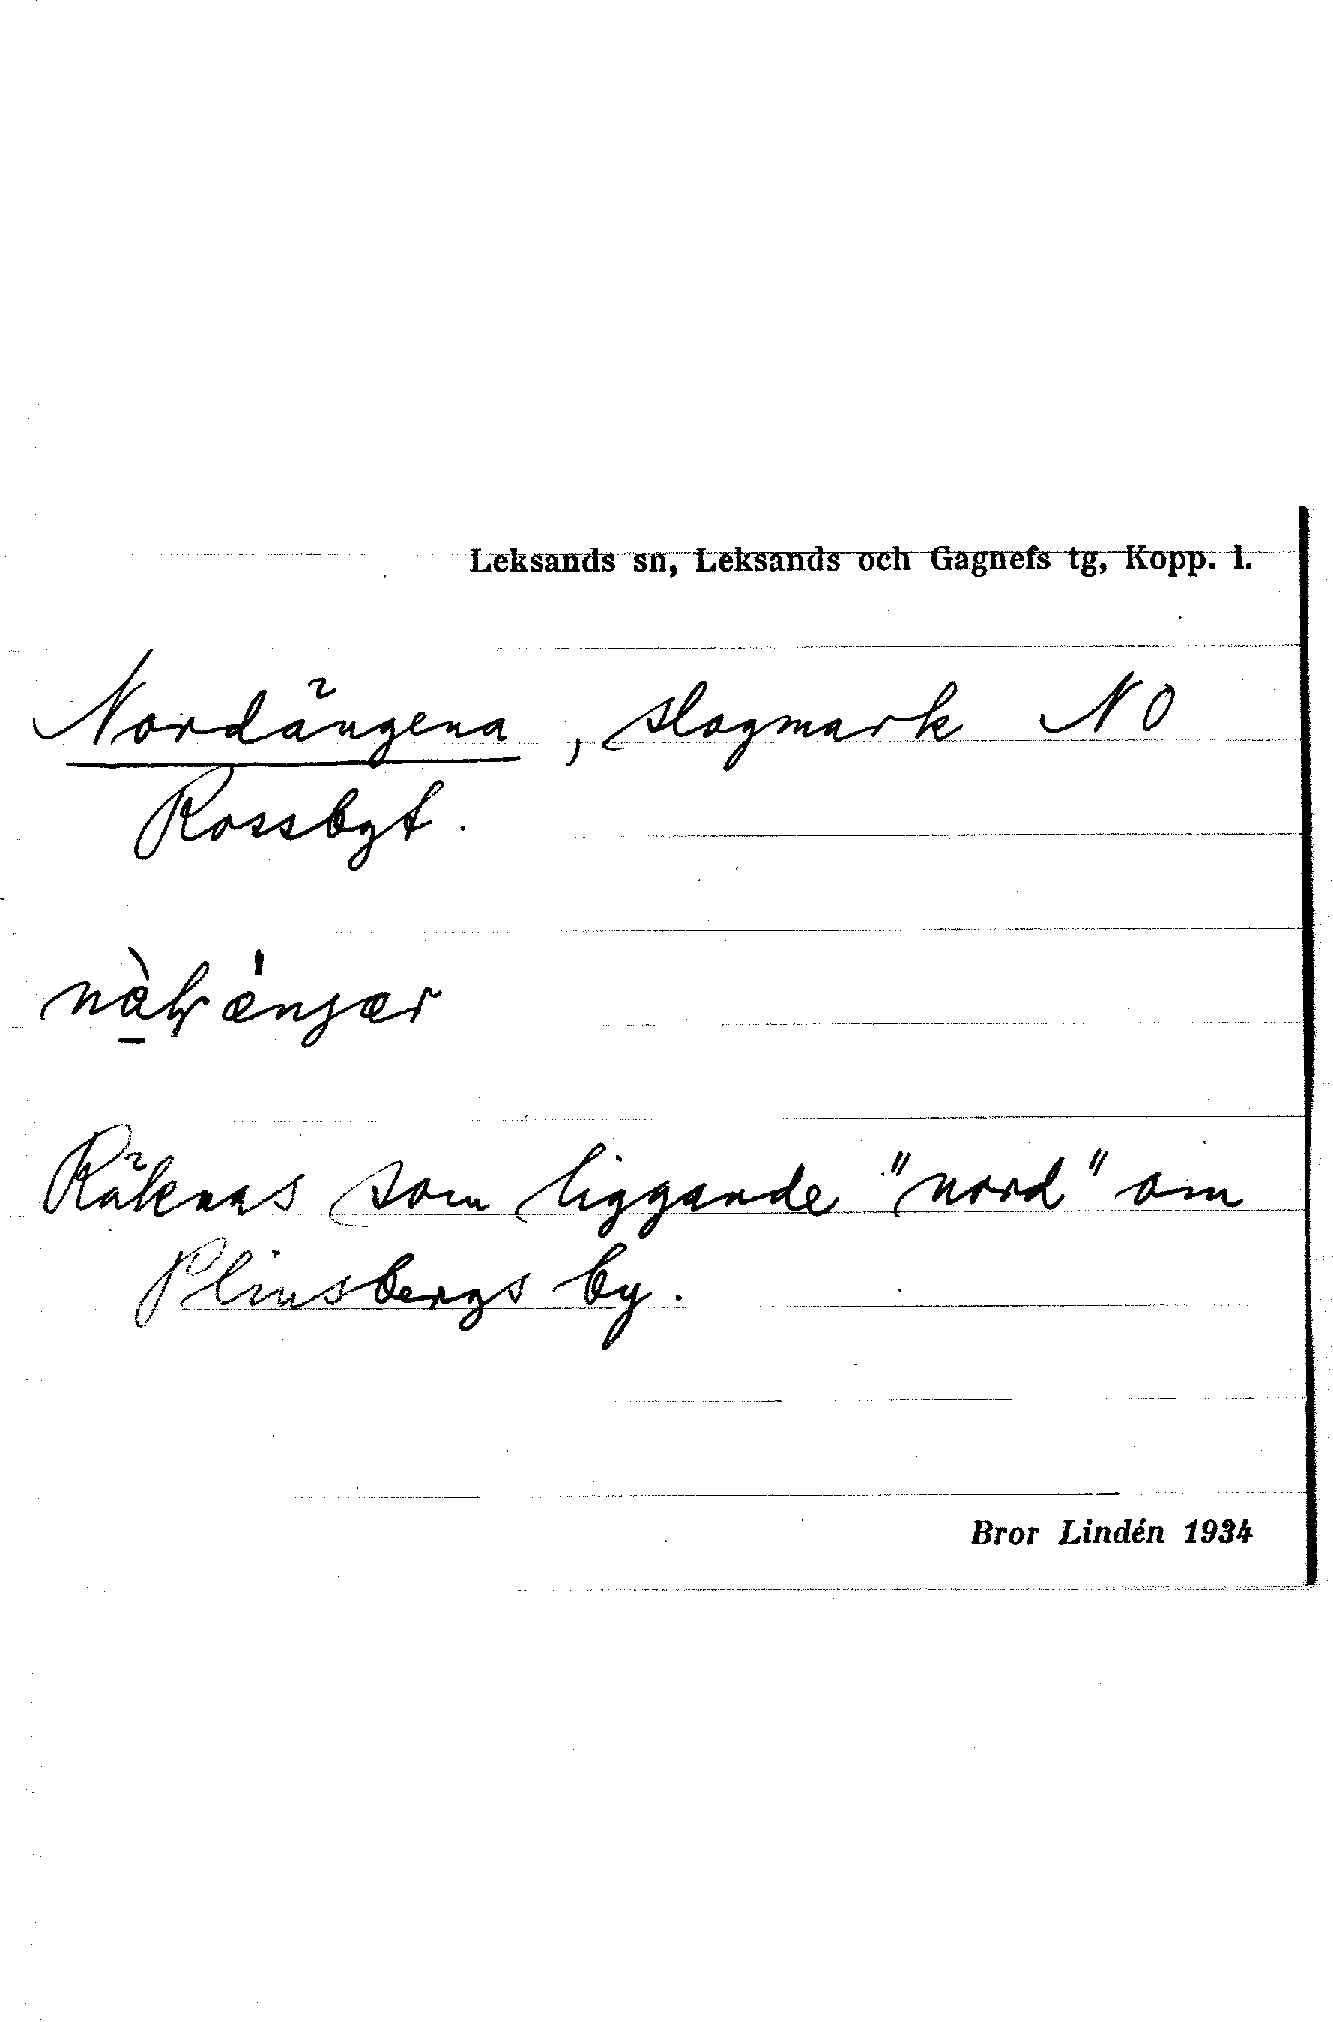 Leksands sn, Leksands och Gagnefs tg, Kopp. l.
Nordängena, slogmark NO
Rossbyt.
Räknas som liggande "nord" om
Plinsbergs by.
Bror Lindén 1934